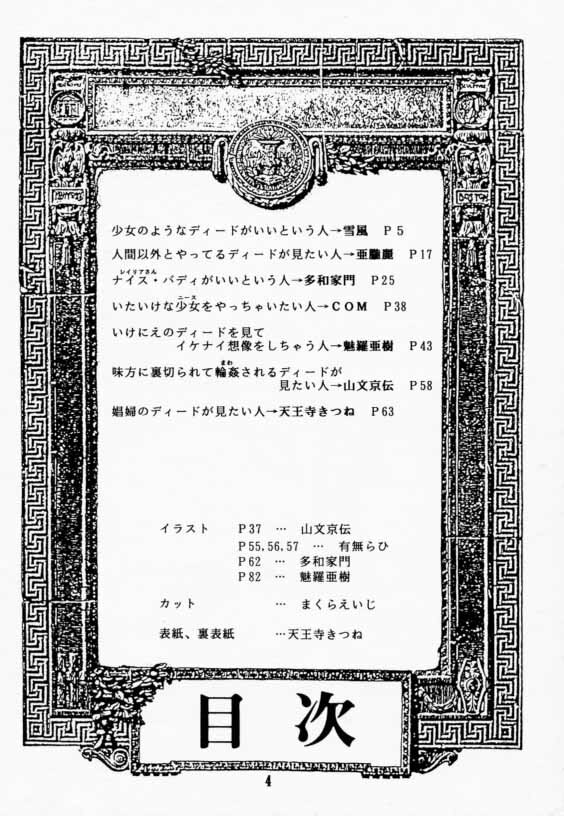 少女のようなディードがいいという人→雪風 P5
人間以外とやってるディードが見たい人→亜麤麗 P17
レイリアさん
ナイス・バディがいいという人→多和家門 P25
ニース
いたいけな少女をやっちゃいたい人→COM P38
いけにえのディードを見て
イケナイ想像をしちゃう人→魅羅亜樹 P43
まわ
味方に裏切られて輪姦されるディードが
見たい人→山文京伝 P58
娼婦のディードが見たい人→天王寺きつね P63
イラスト P37 … 山文京伝
P55,56,57 … 有無らひ
P62 … 多和家門
P82 … 魅羅亜樹
カット … まくらえいじ
表紙、裏表紙 …天王寺きつね
目次
4